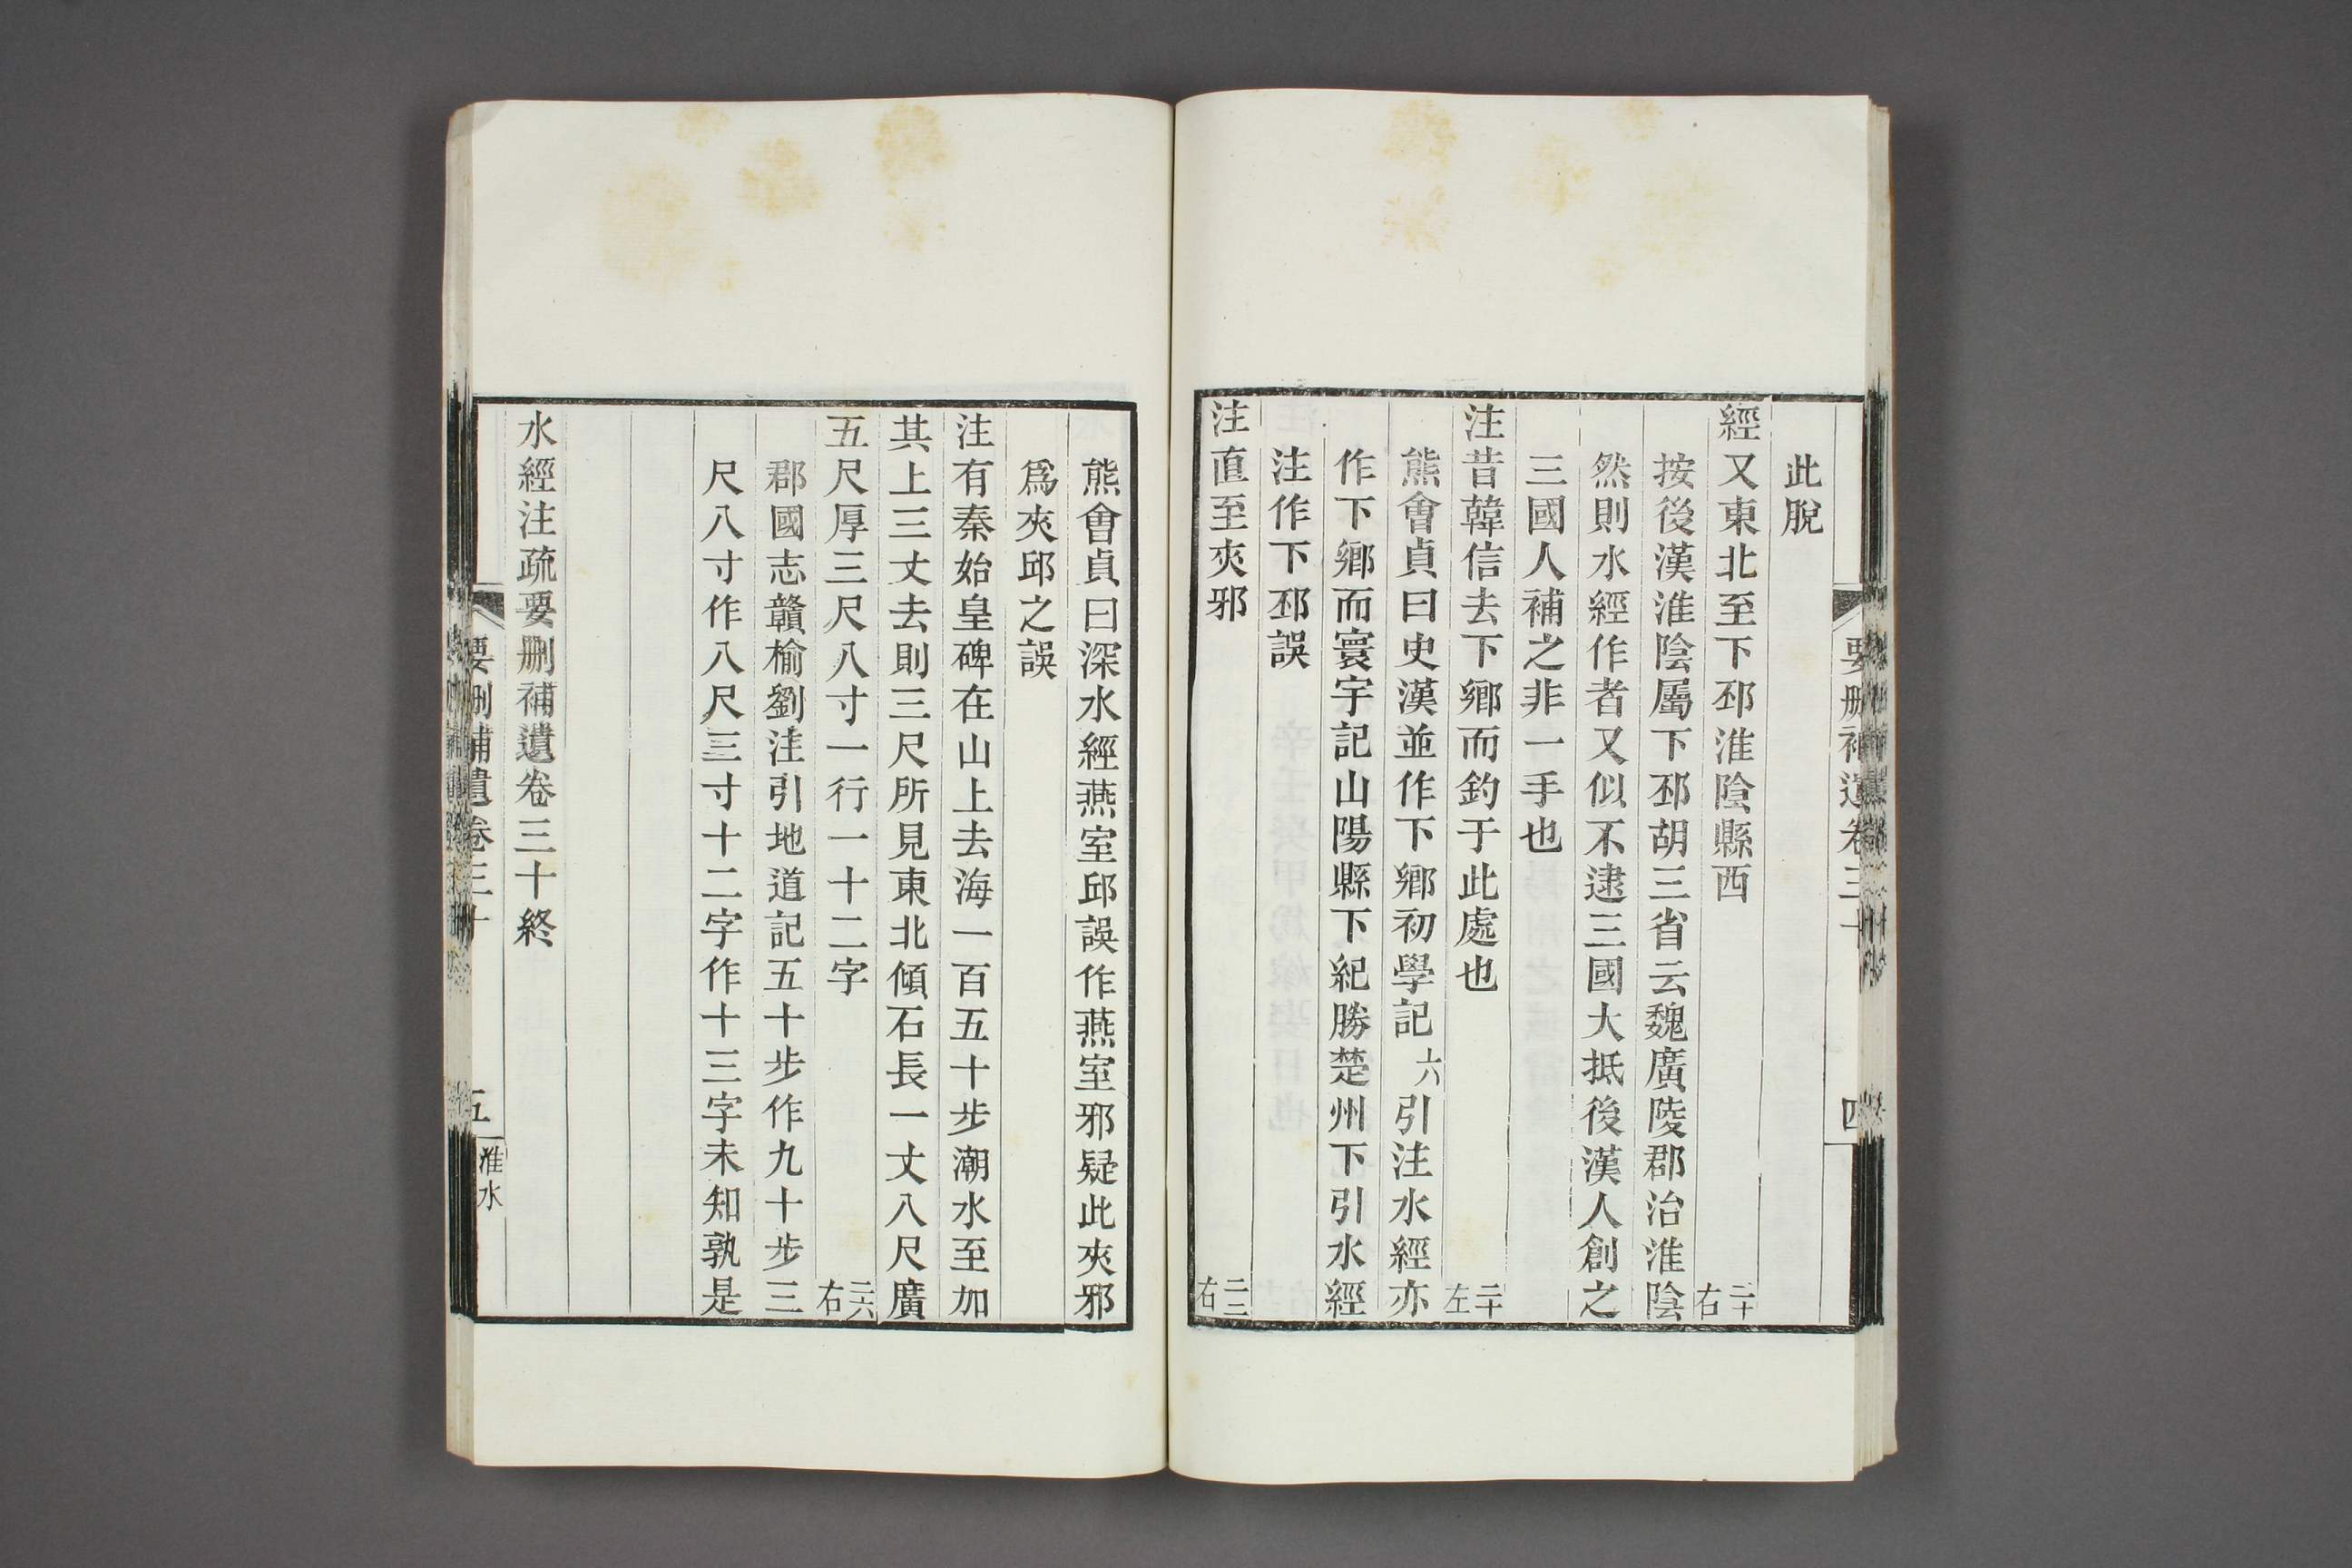 此脫
經又東北至下邳淮陰縣西 二十右
按後漢淮陰屬下邳胡三省云魏廣陵郡治淮陰
然則水經作者又似不逮三國大抵後漢人創之
三國人補之非一手也
注昔韓信去下鄉而釣于此處也 二十左
熊會貞曰史漢並作下鄉初學記六引注水經亦
作下鄉而寰宇記山陽縣下紀勝楚州下引水經
注作下邳誤
注直至夾邪 二二右
熊會貞曰深水經燕室邱誤作燕室邪疑此夾邪
爲夾邱之誤
注有秦始皇碑在山上去海一百五十步潮水至加
其上三丈去則三尺所見東北傾石長一丈八尺廣
五尺厚三尺八寸一行一十二字 二六右
郡國志贛榆劉注引地道記五十步作九十步三
尺八寸作八尺三寸十二字作十三字未知孰是
水經注疏要刪補遺卷三十終
要刪補遺卷三十
四
要刪補遺卷三十
五
淮水